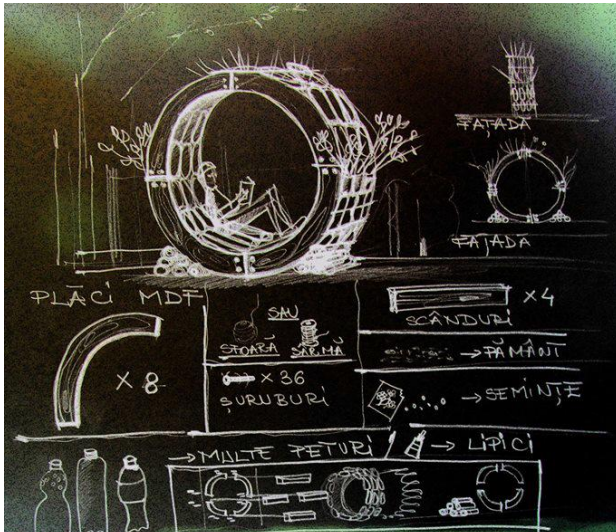 FAȚADĂ
FAȚADĂ
PLĂCI MDF
× 8
SAU
SFOARĂ
SÂRMĂ
× 36
ȘURUBURI
×4
SCÂNDURI
→ PĂMÂNT
→ SEMINȚE
→ MALTE PETURI
→ LIPICI